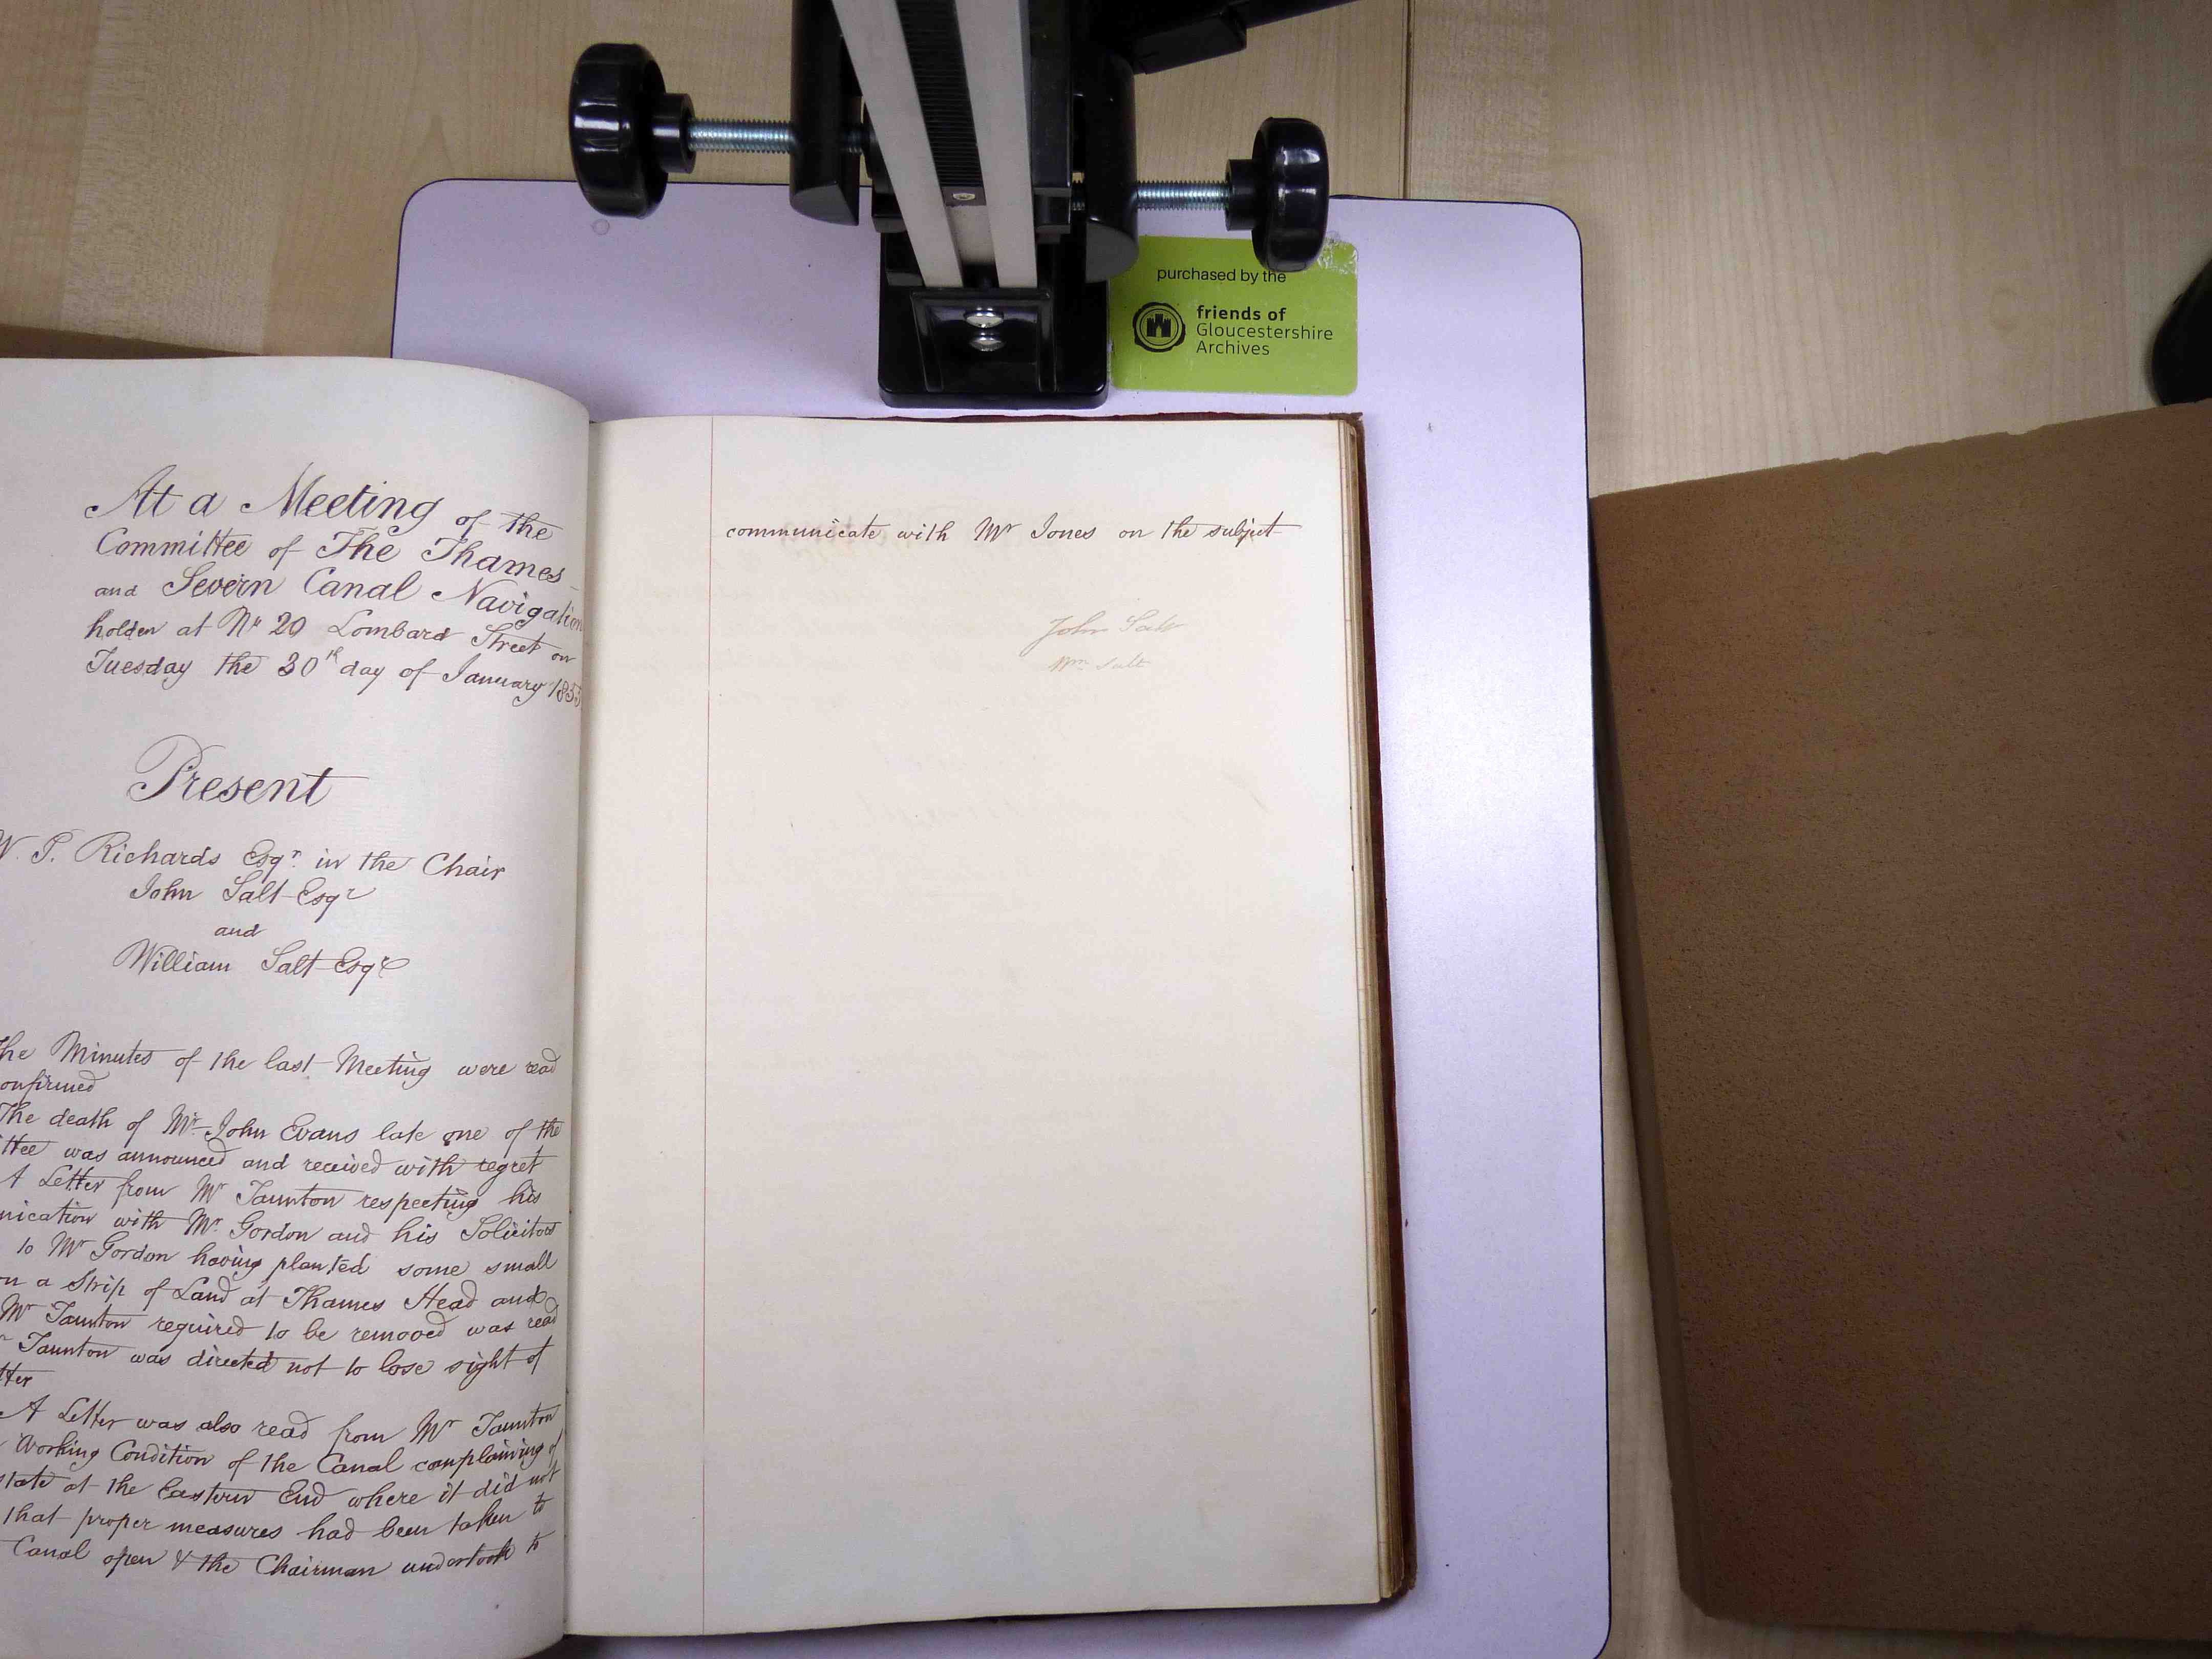 At a Meeting of the
Committee of The Thames
and Severn Canal Navigation
holden at No 20 Lombard Street on
Tuesday the 30th day of January 1855
Present
W. P. Richards Esqr. in the Chair
John Salt Esqr
and
William Salt Esqre
The Minutes of the last Meeting were read
onfirmed
The death of Mr. John Evans late one of the
ttee was announced and received with regret
A Letter from Mr Taunton respecting his
nication with Mr. Gordon and his Solicitors
to Mr Gordon having planted some small
on a Strip of Land at Thames Head and
Mr Taunton required to be removed was read
r Taunton was directed not to lose sight of
tter
A Letter was also read from Mr Taunton
Working Condition of the Canal complaining of
state at the Eastern End where it did not
that proper measures had been taken to
Canal open & the Chairman undertook to
communicate with Mr Jones on the subject
John Salt
Wm Salt
purchased by the
friends of
Gloucestershire
Archives